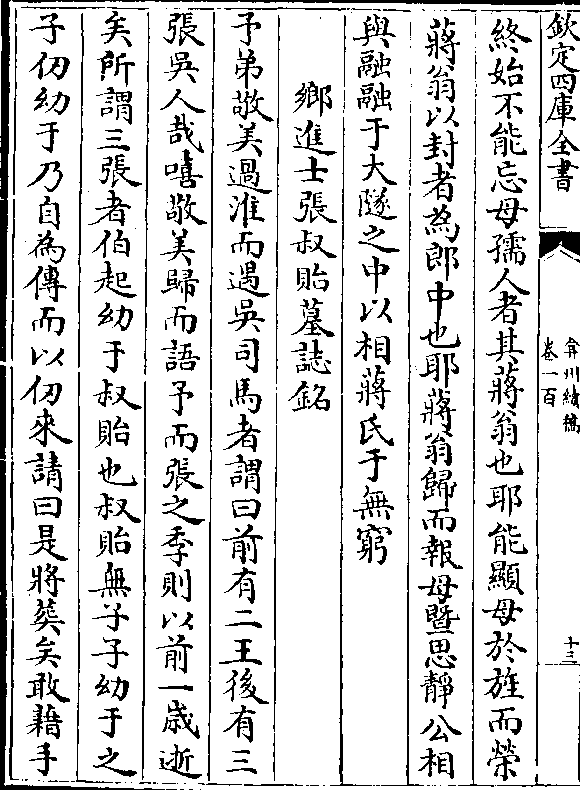 欽定四庫全書
弇州續稿
卷一百
十三
終始不能忘母孺人者其蔣翁也耶能顯母於旌而榮
蔣翁以封者為郎中也耶蔣翁歸而報母暨思靜公相
與融融于大隧之中以相蔣氏于無窮
鄉進士張叔貽墓誌銘
予弟敬美過淮而遇吳司馬者謂曰前有二王後有三
張吳人哉嘻敬美歸而語予而張之季則以前一歲逝
矣所謂三張者伯起幼于叔貽也叔貽無子子幼于之
子仞幼于乃自為傳而以仞來請曰是將葬矣敢藉手